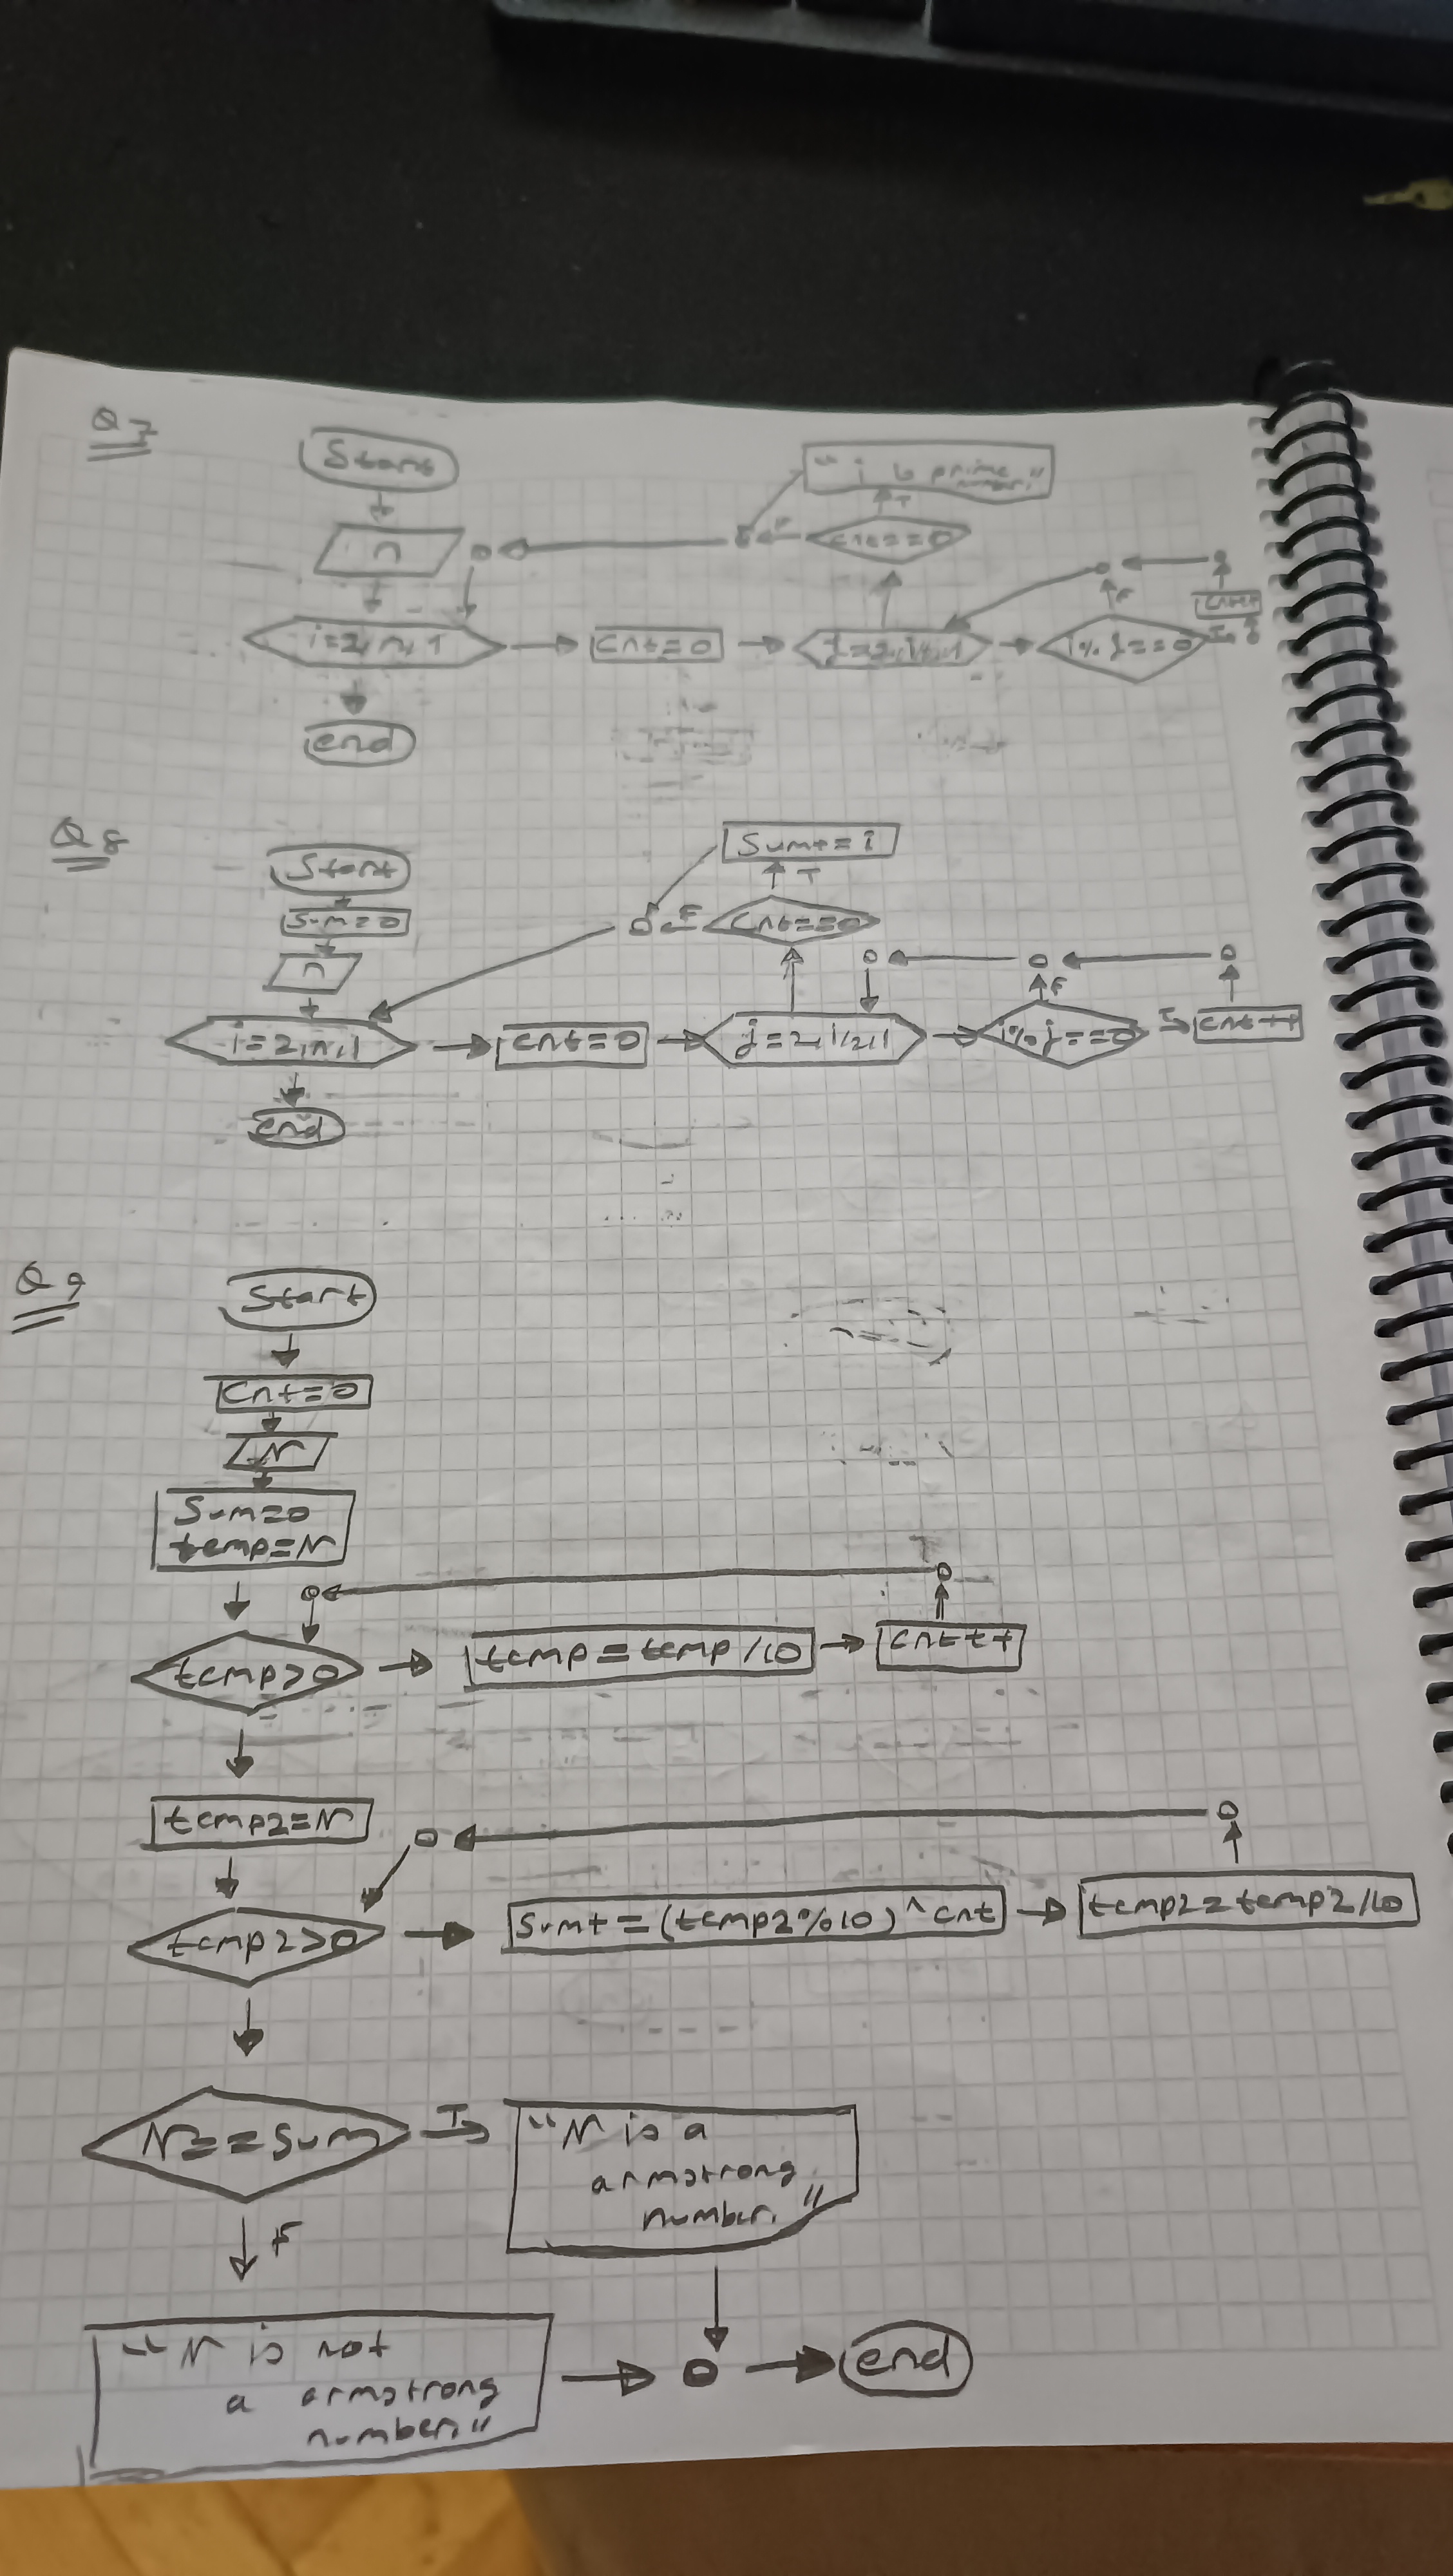 Q7
Start
n
i=2,n,1
end
cnt=0
i%j==0
T
cnt++
F
cnt==0
F
T
"i is prime
number."
Q8
Start
Sum=0
n
i=2,n,1
end
cnt=0
j=2,i/2,1
i%j==0
T
cnt++
F
cnt==0
F
T
Sum+=i
Q9
Start
cnt=0
N
Sum=0
temp=N
temp>0
temp=temp/10
cnt++
temp2=N
temp2>0
Sum+=(temp2%10)^cnt
temp2=temp2/10
N==Sum
T
"N is a
armstrong
number."
F
"N is not
a armstrong
number."
end